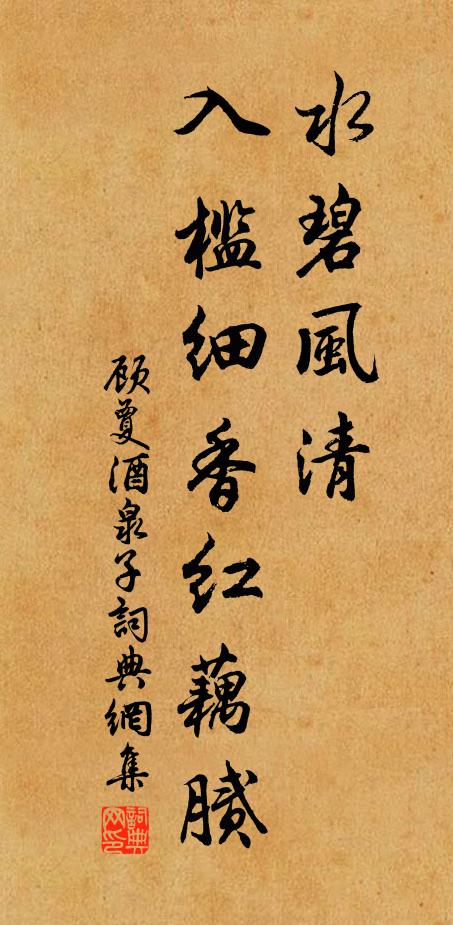 水碧風清
入檻細香紅藕膩
顾夐酒泉子詞典網集
詞典网印